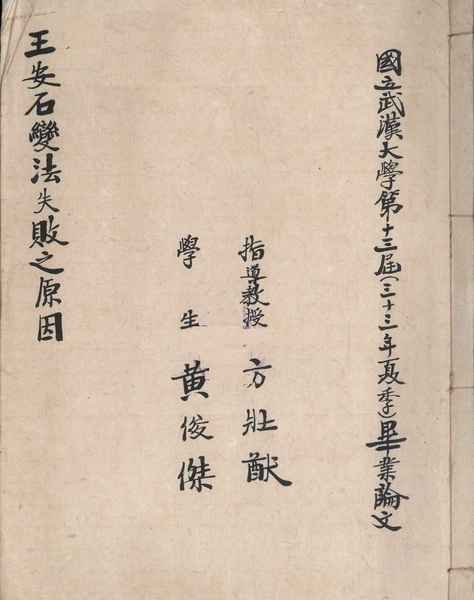 國立武漢大學第十三屆(三十三年夏季)畢業論文
指導教授 方壯猷
學生 黃俊傑
王安石變法失敗之原因